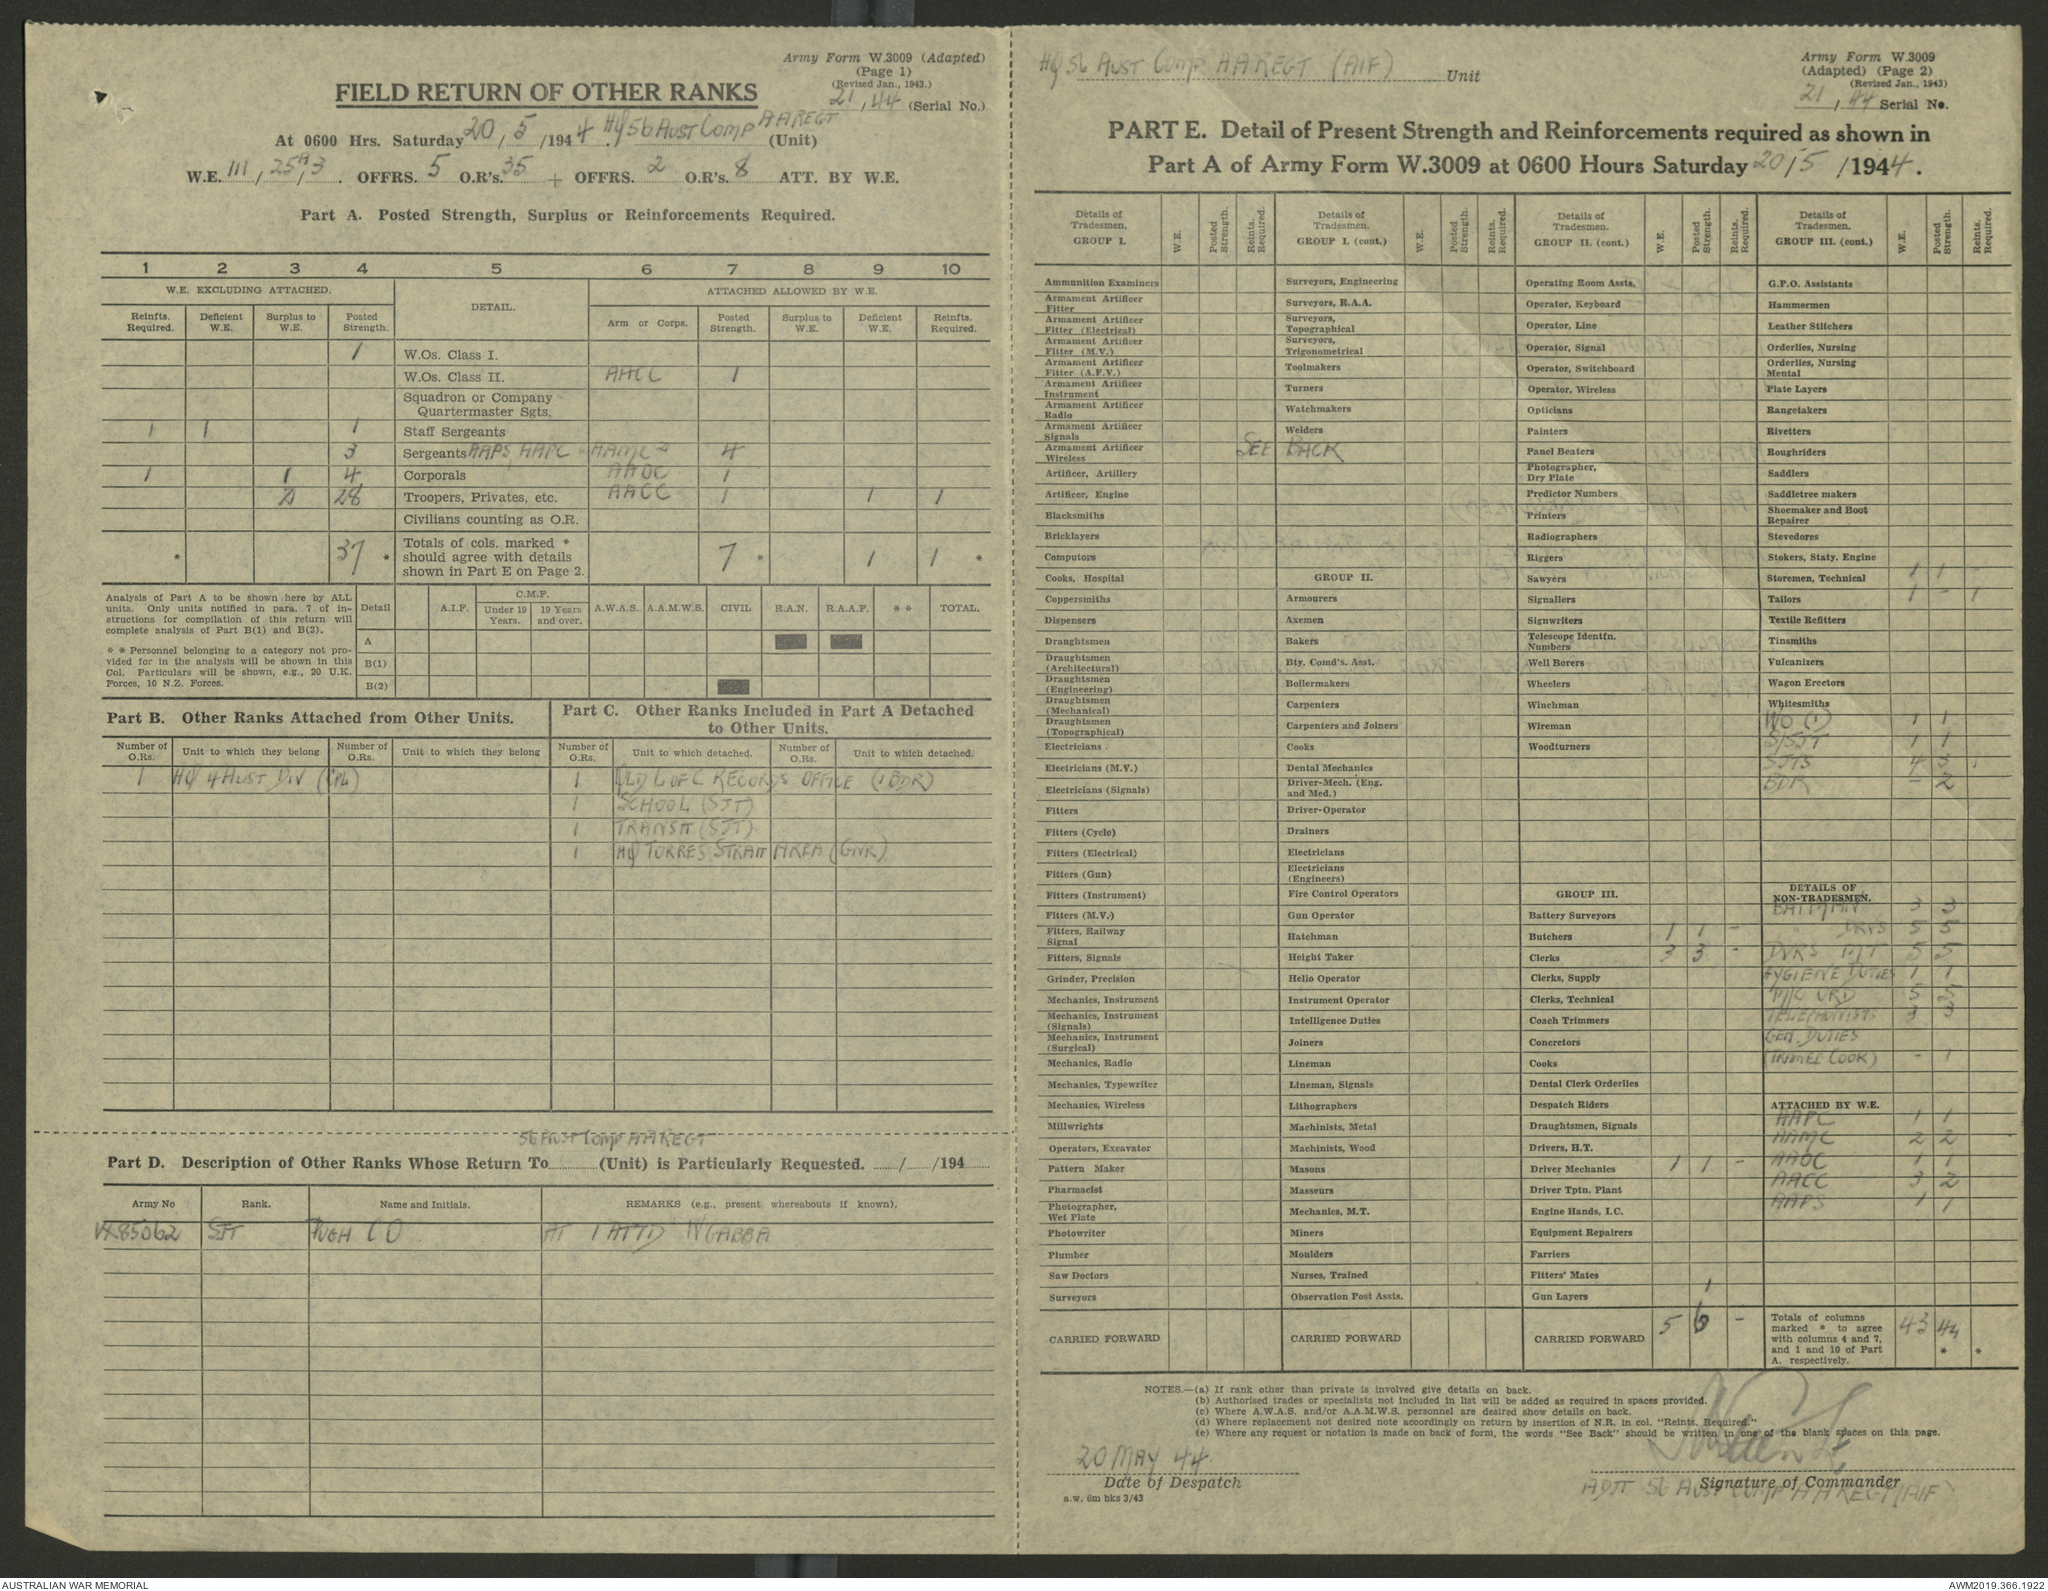 Army Form W.3009 (Adapted)
(Page 1)
(Revised Jan., 1943.)
FIELD RETURN OF OTHER RANKS
21/44 (Serial No.)
At 0600 Hrs. Saturday 20/5/1944. HQ 56 AUST COMP AA REGT (Unit)
W.E. III/25A/3. OFFRS. 5 O.R's. 35 + OFFRS. 2 O.R's. 8 ATT. BY W.E.
Part A. Posted Strength, Surplus or Reinforcements Required.
1 2 3 4 5 6 7 8 9 10
W.E. EXCLUDING ATTACHED. DETAIL. ATTACHED ALLOWED BY W.E.
Reinfts. Required. Deficient W.E. Surplus to W.E. Posted Strength. Arm or Corps. Posted Strength. Surplus to W.E. Deficient W.E. Reinfts. Required.
1 W.Os. Class I.
W.Os. Class II. AACC 1
Squadron or Company
Quartermaster Sgts.
1 1 1 Staff Sergeants
3 Sergeants AAPS AAPC AAMC 2 4
1 1 4 Corporals AAOC 1
2 28 Troopers, Privates, etc. AACC 1 1 1
Civilians counting as O.R.
* 37 * Totals of cols. marked * should agree with details shown in Part E on Page 2. 7 * 1 1 *
Analysis of Part A to be shown here by ALL
units. Only units notified in para. 7 of in-
structions for compilation of this return will
complete analysis of Part B(1) and B(2).
* * Personnel belonging to a category not pro-
vided for in the analysis will be shown in this
Col. Particulars will be shown, e.g., 20 U.K.
Forces, 10 N.Z. Forces.
Detail A.I.F. C.M.F. Under 19 Years. 19 Years and over. A.W.A.S. A.A.M.W.S. CIVIL R.A.N. R.A.A.F. * * TOTAL.
A
B(1)
B(2)
Part B. Other Ranks Attached from Other Units.
Part C. Other Ranks Included in Part A Detached
to Other Units.
Number of O.Rs. Unit to which they belong Number of O.Rs. Unit to which they belong Number of O.Rs. Unit to which detached. Number of O.Rs. Unit to which detached.
1 HQ 4 AUST DIV (CPL) 1 QLD L OF C RECORDS OFFICE (1 BDR)
1 SCHOOL (SJT)
1 TRANSIT (SJT)
1 HQ TORRES STRAIT AREA (GNR)
56 AUST COMP AA REGT
Part D. Description of Other Ranks Whose Return To (Unit) is Particularly Requested. / /194
Army No Rank. Name and Initials. REMARKS (e.g., present whereabouts if known).
VX85062 SJT PUGH C O AT 1 ATTD W'GABBA
HQ 56 AUST COMP AA REGT (AIF) Unit
Army Form W.3009
(Adapted) (Page 2)
(Revised Jan., 1943)
21/44 Serial No.
PART E. Detail of Present Strength and Reinforcements required as shown in
Part A of Army Form W.3009 at 0600 Hours Saturday 20/5/1944.
Details of Tradesmen. GROUP I. W.E. Posted Strength. Reints. Required.
Ammunition Examiners
Armament Artificer Fitter
Armament Artificer Fitter (Electrical)
Armament Artificer Fitter (M.V.)
Armament Artificer Fitter (A.F.V.)
Armament Artificer Instrument
Armament Artificer Radio
Armament Artificer Signals
Armament Artificer Wireless
Artificer, Artillery
Artificer, Engine
Blacksmiths
Bricklayers
Computors
Cooks, Hospital
Coppersmiths
Dispensers
Draughtsmen
Draughtsmen (Architectural)
Draughtsmen (Engineering)
Draughtsmen (Mechanical)
Draughtsmen (Topographical)
Electricians
Electricians (M.V.)
Electricians (Signals)
Fitters
Fitters (Cycle)
Fitters (Electrical)
Fitters (Gun)
Fitters (Instrument)
Fitters (M.V.)
Fitters, Railway Signal
Fitters, Signals
Grinder, Precision
Mechanics, Instrument
Mechanics, Instrument (Signals)
Mechanics, Instrument (Surgical)
Mechanics, Radio
Mechanics, Typewriter
Mechanics, Wireless
Millwrights
Operators, Excavator
Pattern Maker
Pharmacist
Photographer, Wet Plate
Photowriter
Plumber
Saw Doctors
Surveyors
CARRIED FORWARD
Details of Tradesmen. GROUP I. (cont.) W.E. Posted Strength. Reints. Required.
Surveyors, Engineering
Surveyors, R.A.A.
Surveyors, Topographical
Surveyors, Trigonometrical
Toolmakers
Turners
Watchmakers
Welders
SEE BACK
GROUP II.
Armourers
Axemen
Bakers
Bty. Comd's. Asst.
Boilermakers
Carpenters
Carpenters and Joiners
Cooks
Dental Mechanics
Driver-Mech. (Eng. and Med.)
Driver-Operator
Drainers
Electricians
Electricians (Engineers)
Fire Control Operators
Gun Operator
Hatchman
Height Taker
Helio Operator
Instrument Operator
Intelligence Duties
Joiners
Lineman
Lineman, Signals
Lithographers
Machinists, Metal
Machinists, Wood
Masons
Masseurs
Mechanics, M.T.
Miners
Moulders
Nurses, Trained
Observation Post Assts.
CARRIED FORWARD
Details of Tradesmen. GROUP II. (cont.) W.E. Posted Strength. Reints. Required.
Operating Room Assts.
Operator, Keyboard
Operator, Line
Operator, Signal
Operator, Switchboard
Operator, Wireless
Opticians
Painters
Panel Beaters
Photographer, Dry Plate
Predictor Numbers
Printers
Radiographers
Riggers
Sawyers
Signallers
Signwriters
Telescope Identfn. Numbers
Well Borers
Wheelers
Winchman
Wireman
Woodturners
GROUP III.
Battery Surveyors
Butchers 1 1 -
Clerks 3 3 -
Clerks, Supply
Clerks, Technical
Coach Trimmers
Concretors
Cooks
Dental Clerk Orderlies
Despatch Riders
Draughtsmen, Signals
Drivers, H.T.
Driver Mechanics 1 1 -
Driver Tptn. Plant
Engine Hands, I.C.
Equipment Repairers
Farriers
Fitters' Mates
Gun Layers 1
CARRIED FORWARD 5 6 -
Details of Tradesmen. GROUP III. (cont.) W.E. Posted Strength. Reints Required.
G.P.O. Assistants
Hammermen
Leather Stitchers
Orderlies, Nursing
Orderlies, Nursing Mental
Plate Layers
Rangetakers
Rivetters
Roughriders
Saddlers
Saddletree makers
Shoemaker and Boot Repairer
Stevedores
Stokers, Staty. Engine
Storemen, Technical 1 1 -
Tailors 1 - 1
Textile Refitters
Tinsmiths
Vulcanizers
Wagon Erectors
Whitesmiths
WO (1) 1 1
S/SJT 1 1
SJTS 4 3 1
BDR - 2
DETAILS OF NON-TRADESMEN.
BATMEN 3 3
" DRVS 5 5
DVRS M/T 5 5
HYGIENE DUTIES 1 1
5 5
TELEPHONISTS 3 3
GEN. DUTIES
(TRAINEE COOK) - 1
ATTACHED BY W.E.
AAPC 1 1
AAMC 2 2
AAOC 1 1
AACC 3 2
AAPS 1 1
Totals of columns marked * to agree with columns 4 and 7, and 1 and 10 of Part A. respectively. 43 44 * *
NOTES.—(a) If rank other than private is involved give details on back.
(b) Authorised trades or specialists not included in list will be added as required in spaces provided.
(c) Where A.W.A.S. and/or A.A.M.W.S. personnel are desired show details on back.
(d) Where replacement not desired note accordingly on return by insertion of N.R. in col. "Reints. Required."
(e) Where any request or notation is made on back of form, the words "See Back" should be written in one of the blank spaces on this page.
20 MAY 44
Date of Despatch
a.w. 6m bks 3/43
Signature of Commander
ADJT 56 AUST COMP AA REGT (AIF)
AUSTRALIAN WAR MEMORIAL
AWM2019.366.1922